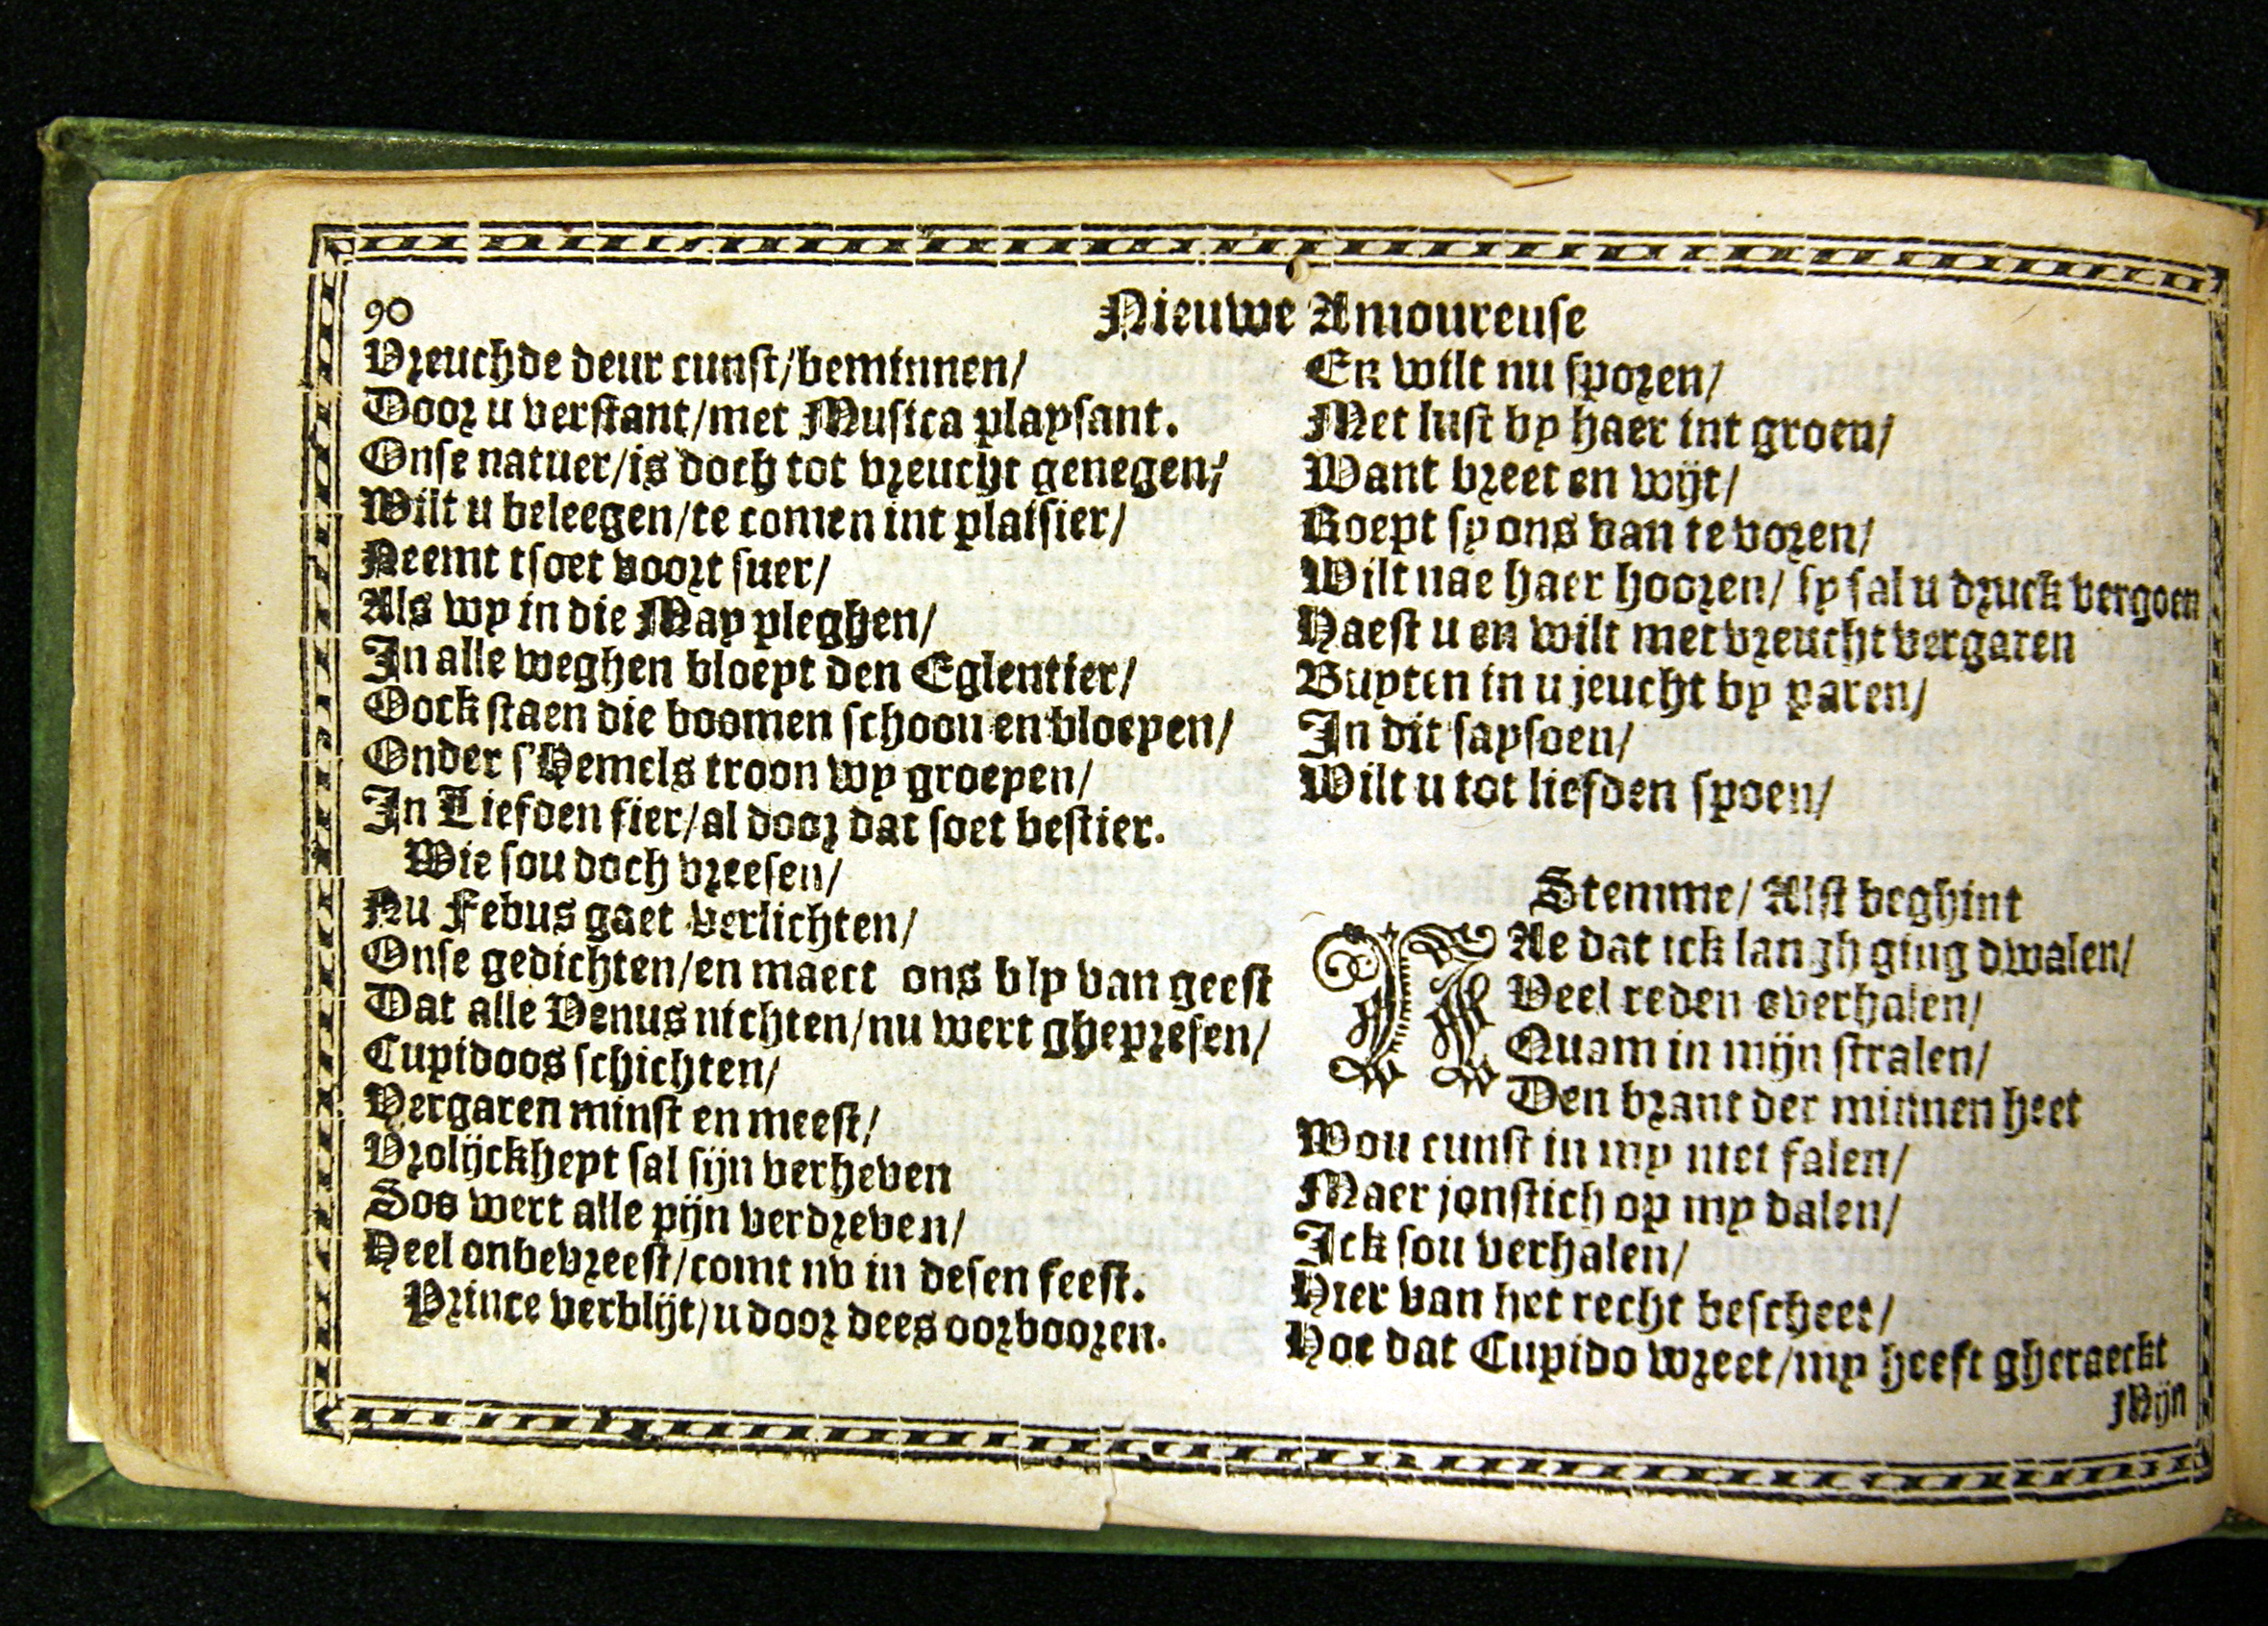 90
Nieuwe Amoureuse
Vreuchde deur cunst/beminnen/
Door u verstant/met Musica playsant.
Onse natuer/is doch tot vreucht genegen/
Wilt u beleegen/te comen int plaisier/
Neemt tsoet voort suer/
Als wy in die May pleghen/
In alle weghen bloeyt den Eglentier/
Oock staen die boomen schoon en bloeyen/
Onder s'Hemels troon wy groeyen/
In Liefden fier/al door dat soet bestier.
Wie sou doch vreesen/
Nu Febus gaet verlichten/
Onse gedichten/en maect ons bly van geest
Dat alle Venus nichten/nu wert ghepresen/
Cupidoos schichten/
Vergaren minst en meest/
Vrolijckheyt sal sijn verheven
Soo wert alle pijn verdreven/
Heel onbevreest/comt nv in desen feest.
Prince verblijt/u door dees oorbooren.
En wilt nu sporen/
Met lust by haer int groen/
Want breet en wijt/
Roept sy ons van te voren/
Wilt nae haer hooren/ sy sal u druck vergoen
Haest u en wilt met vreucht vergaren
Buyten in u jeucht by paren/
In dit saysoen/
Wilt u tot liefden spoen/
Stemme/ Alst beghint
NAe dat ick langh ging dwalen/
Veel reden overhalen/
Quam in mijn stralen/
Den brant der minnen heet
Wou cunst in my niet falen/
Maer jonstich op my dalen/
Ick sou verhalen/
Hier van het recht bescheet/
Hoe dat Cupido wreet/my heeft gheraeckt
Mijn